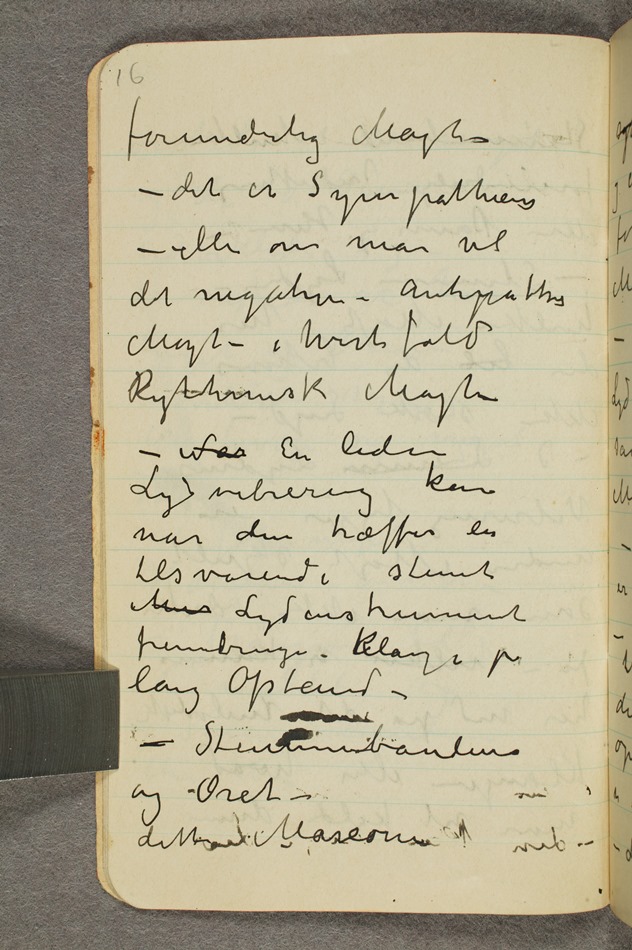 16
forunderlig Magt –
– det er Sympathiens
– eller om man vil
det negative – Antipathis
Magt – i hvert fald
Rythmisk Magt –
– En liden
Lydvibrering kan
når den træffer en
tilsvarende stemt
Lydinstrument
frembringe – Klange på
lang Afstand –
– Stemmebåndene
og Øret –
dette Marconi